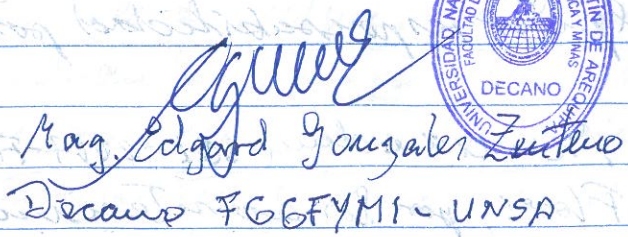 UNIVERSIDAD NA
TIN DE AREQUIPA
FACULTAD D
ICA Y MINAS
DECANO
Mag. Edgard Gonzales Zenteno
Decano FGGFYMI - UNSA